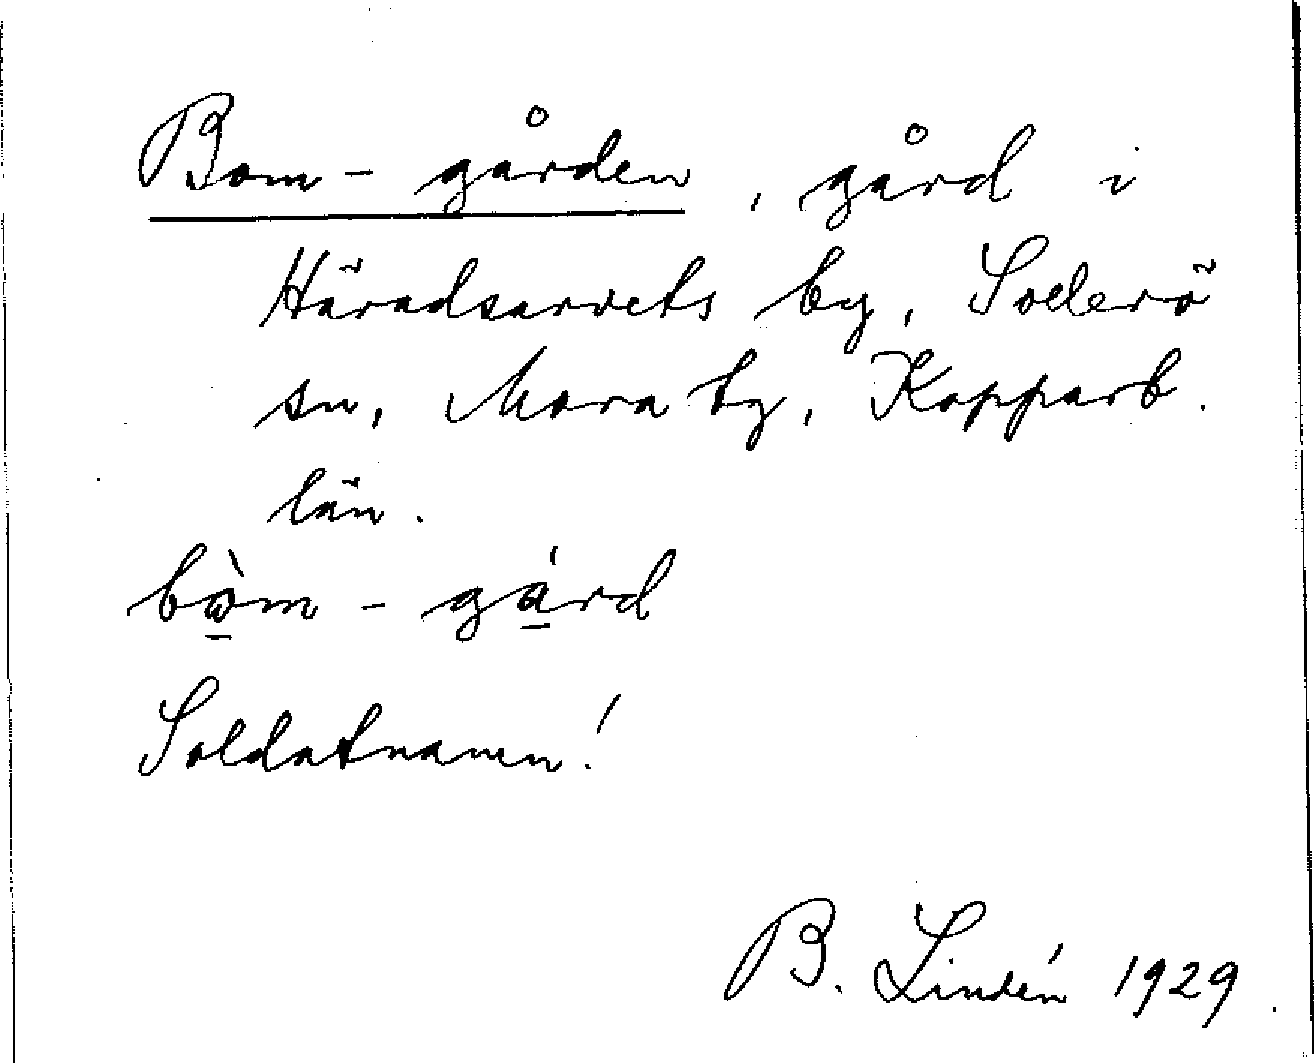 Bom-gården, gård i
Häradsarvets by, Sollerö
sn, Mora tg, Kopparb.
län.
bo̱̊̀m - gá̱rd
Soldatnamn!
B. Lindén 1929.